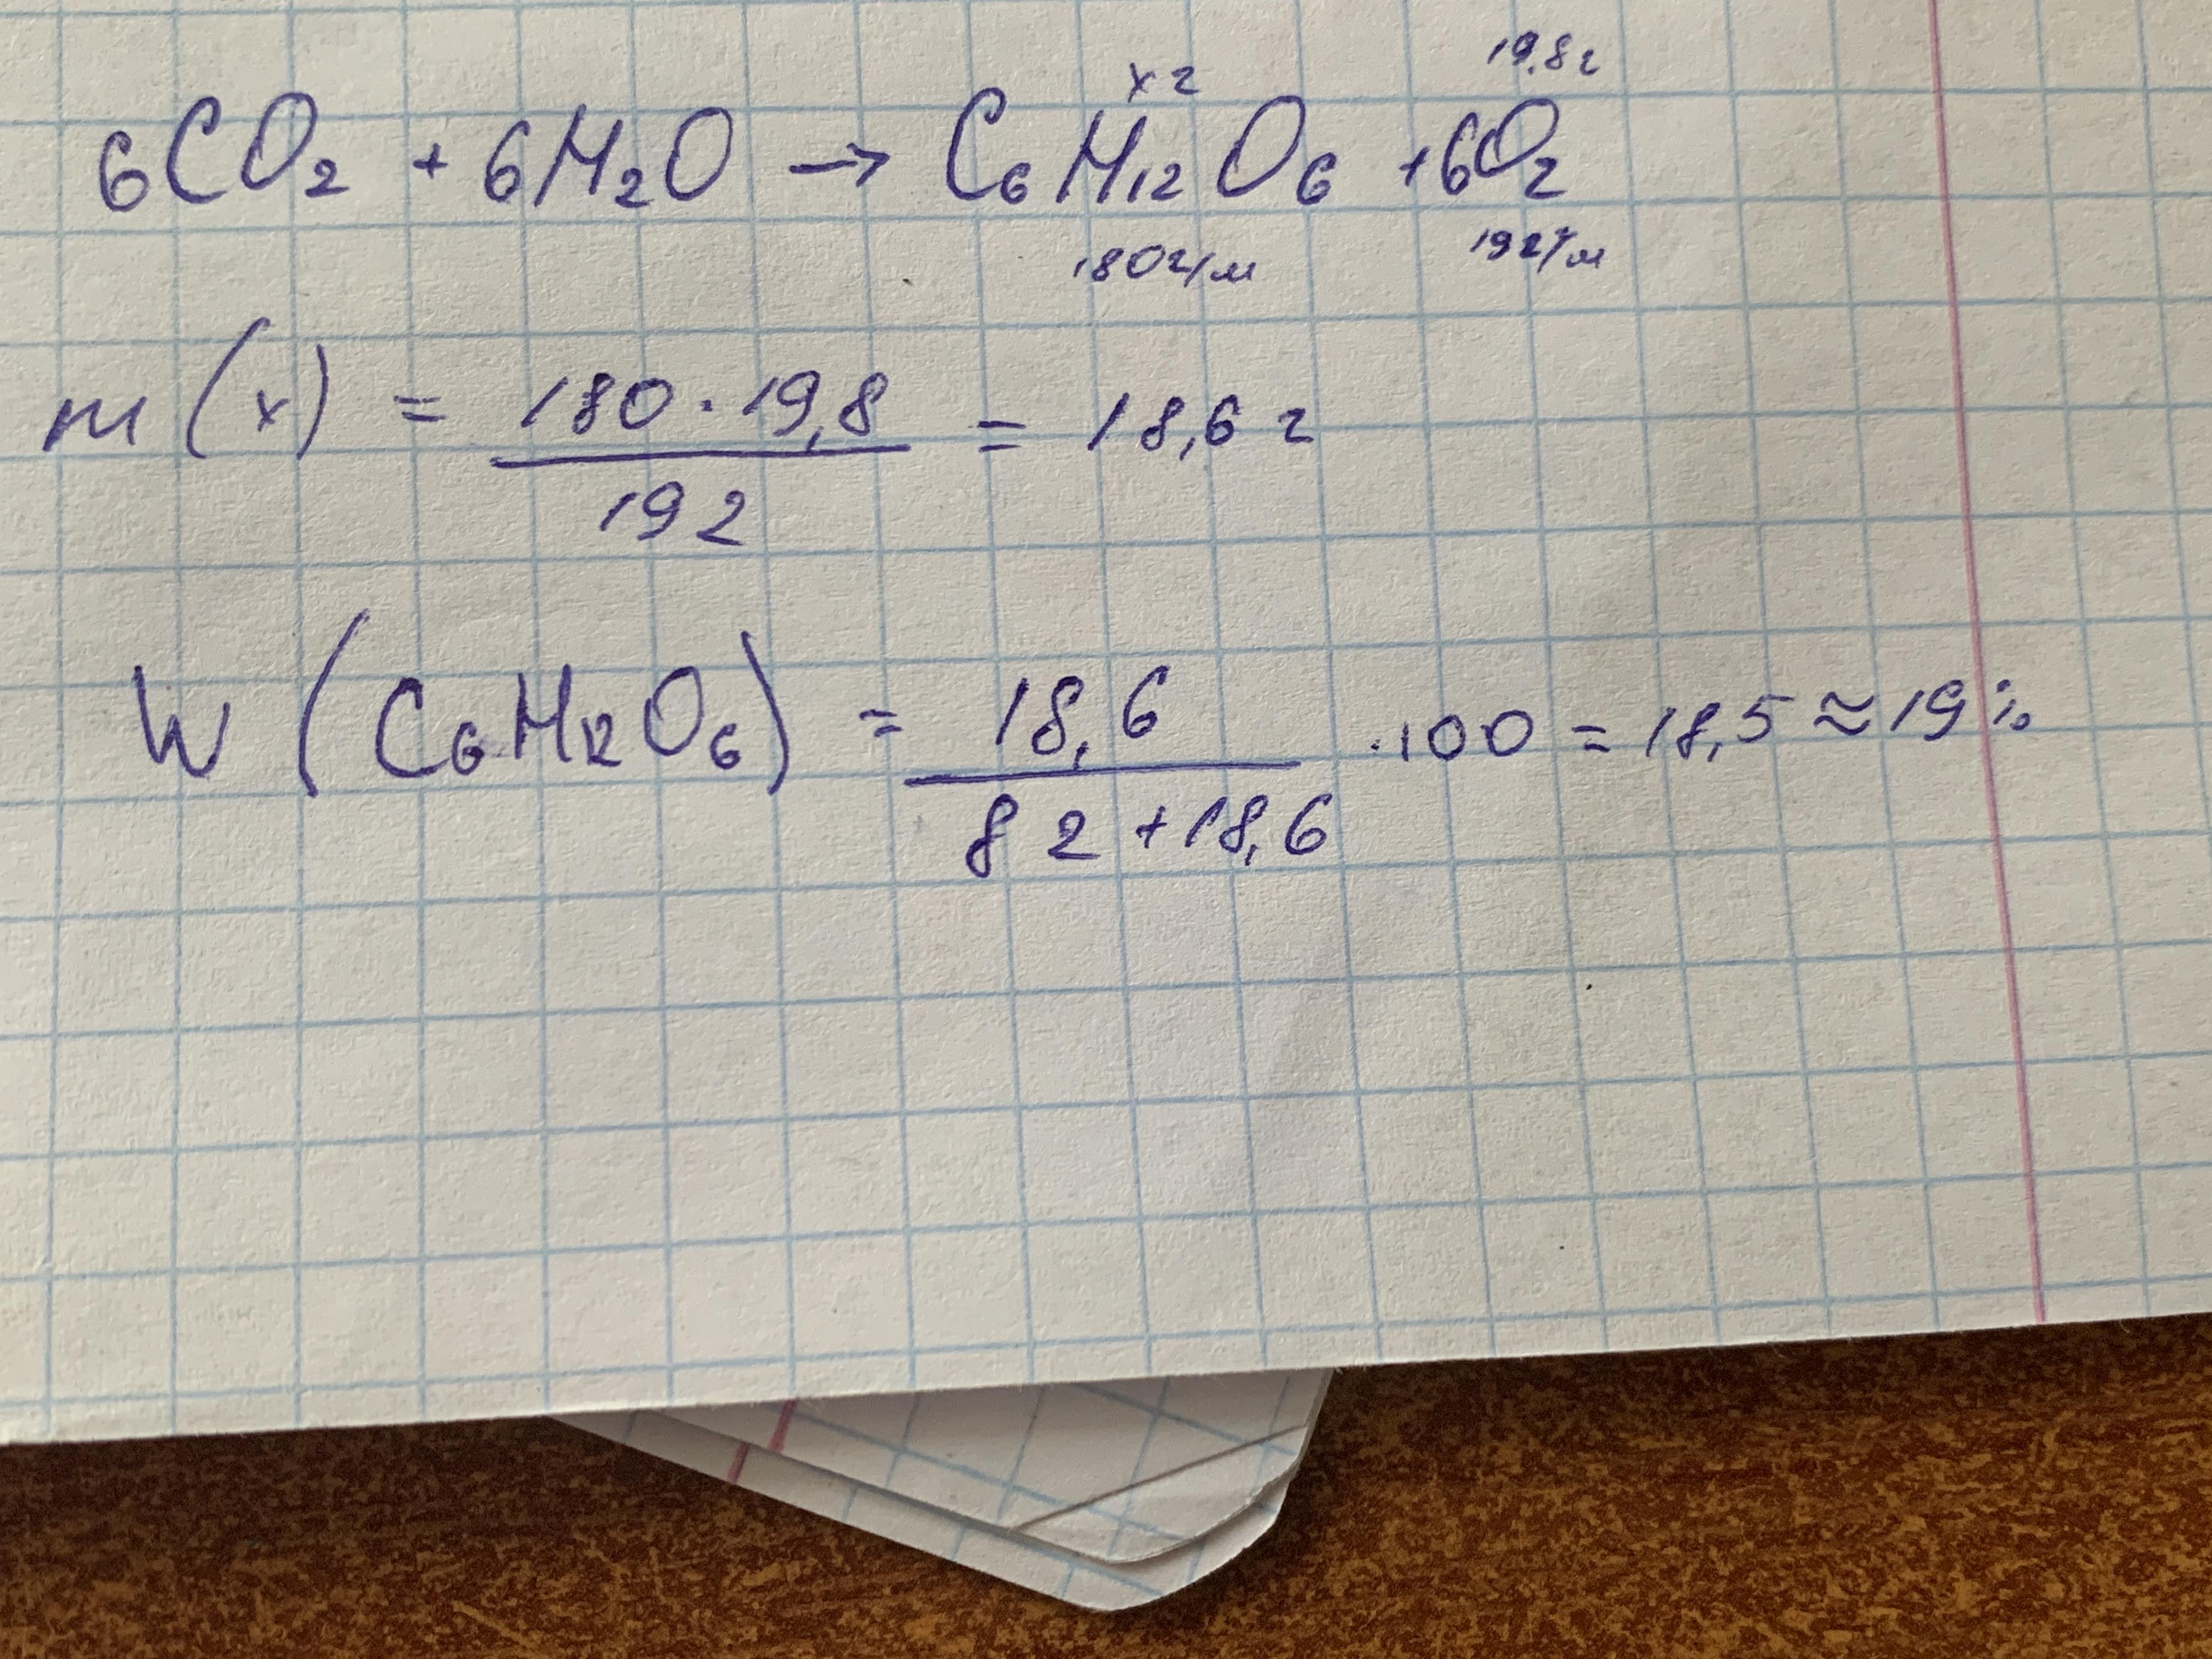 x г 19,8 г
6CO₂ + 6H₂O → C₆H₁₂O₆ + 6O₂
180 г/м 192 г/м
m(x) = 180 · 19,8 / 192 = 18,6 г
W(C₆H₁₂O₆) = 18,6 / 82 + 18,6 · 100 = 18,5 ≈ 19%